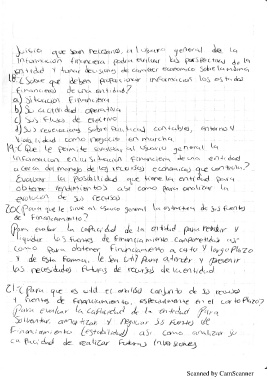 Juicio que sean necesarios, al usuario general de la
información financiera poder evaluar las perspectivas de la
entidad y tomar decisiones de carácter económico sobre la misma
18. ¿Sobre que deben proporcionar información los estados
financieros de una entidad?
a) Situación Financiera
b) Su actividad operativa
c) Sus flujos de efectivo
d) Sus revelaciones sobre políticas contables, entorno y
viabilidad como negocio en marcha
19. ¿Que le permite evaluar al usuario general la
información en la situación financiera de una entidad
acerca del manejo de los recursos económicos que controla?
Evaluar la posibilidad que tiene la entidad para
obtener rendimientos así como para analizar la
evolución de sus recursos
20. ¿Para que le sirve al usuario general la estructura de sus fuentes
de financiamiento?
Para evaluar la capacidad de la entidad para retribuir y
liquidar las fuentes de financiamiento comprometidas así
como para obtener financiamiento a corto y largo plazo
y de esta forma, le sea útil para atender y prevenir
las necesidades futuras de recursos de la entidad
21. ¿Para que es útil el análisis conjunto de sus recursos
y fuentes de financiamiento, especialmente en el corto plazo?
Para evaluar la capacidad de la entidad para
solventar, amortizar y negociar sus fuentes de
financiamiento (estabilidad) así como analizar su
capacidad de realizar futuras inversiones
Scanned by CamScanner